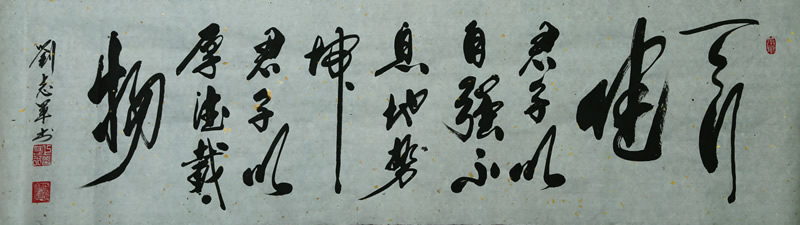 天行
健
君子以
自强不
息地势
坤
君子以
厚德載
物
劉志军书